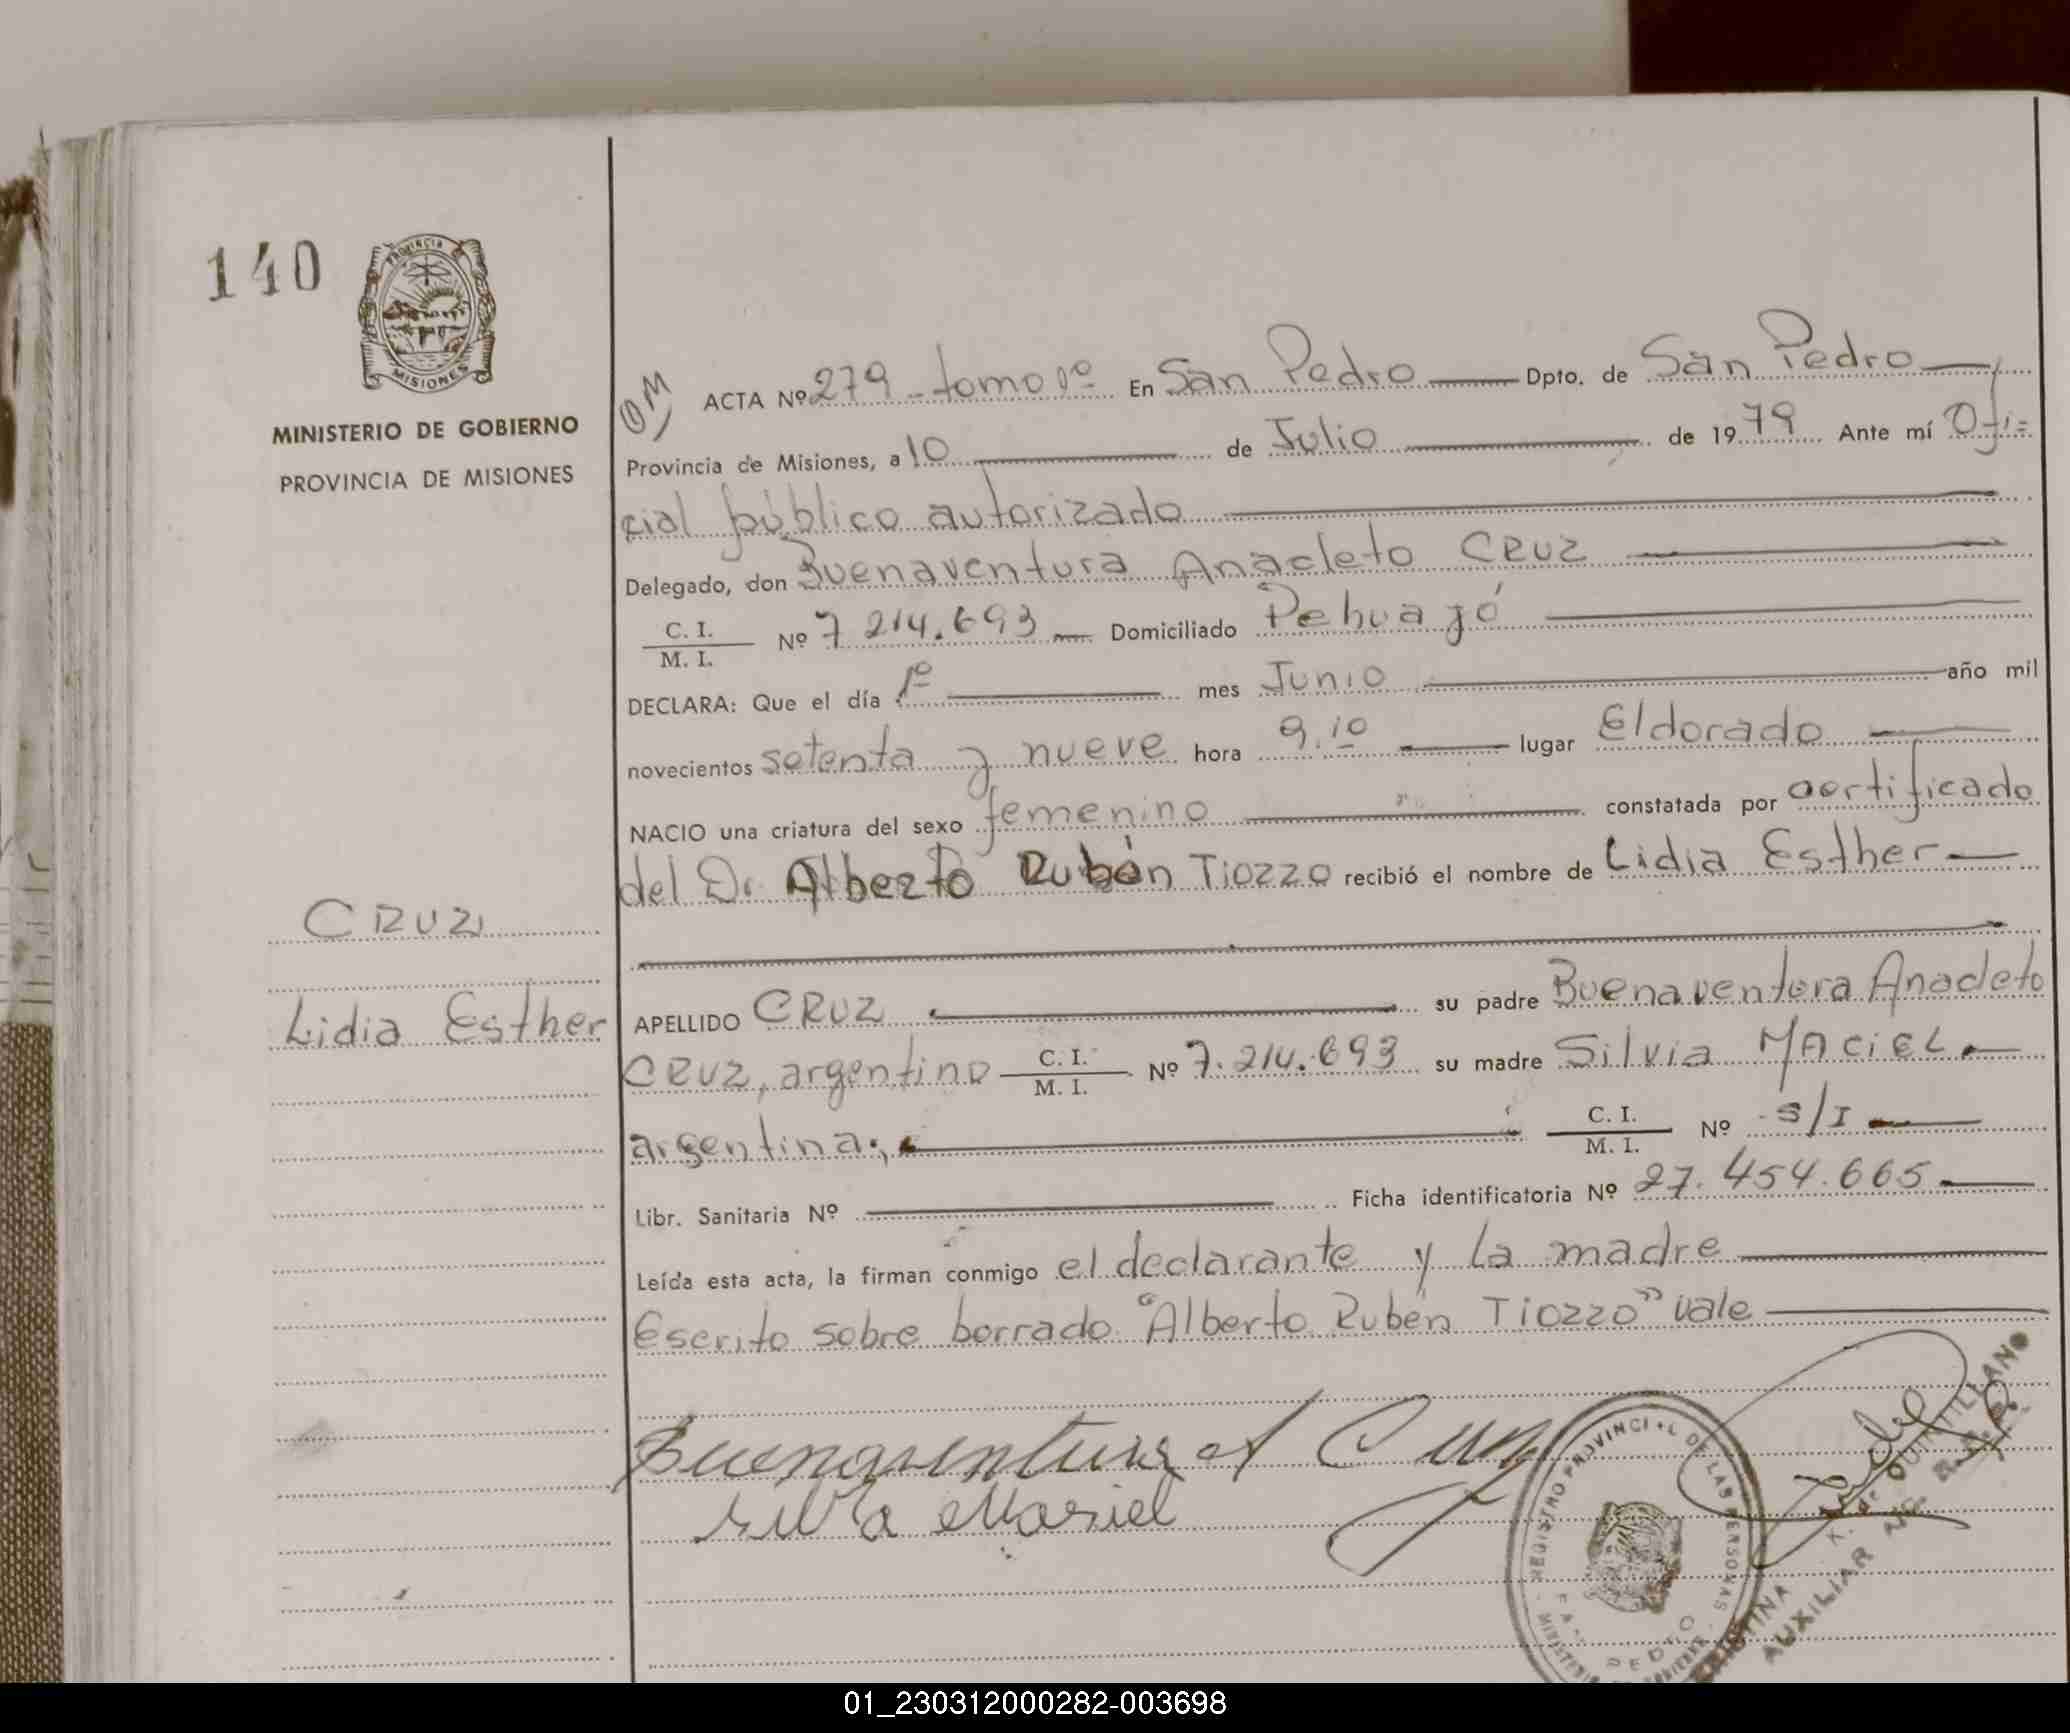 140
PROVINCIA
MISIONES
MINISTERIO DE GOBIERNO
PROVINCIA DE MISIONES
CRUZ
Lidia Esther
OM
ACTA Nº 279 - tomo 1º En San Pedro Dpto. de San Pedro
Provincia de Misiones, a 10 de Julio de 1979 Ante mí Ofi=
cial público autorizado
Delegado, don Buenaventura Anacleto CRUZ
C. I.
M. I. Nº 7.214.693 Domiciliado Pehuajó
DECLARA: Que el día 1º mes Junio año mil
novecientos setenta y nueve hora 9.10 lugar Eldorado
NACIO una criatura del sexo femenino constatada por certificado
del Dr. Alberto Rubén Tiozzo recibió el nombre de Lidia Esther
APELLIDO CRUZ su padre Buenaventura Anacleto
CRUZ, argentino C. I.
M. I. Nº 7.214.693 su madre Silvia MACIEL
argentina; C. I.
M. I. Nº S/I
Libr. Sanitaria Nº Ficha identificatoria Nº 27.454.665
Leída esta acta, la firman conmigo el declarante y la madre
Escrito sobre borrado "Alberto Rubén Tiozzo" vale
Buenaventura A Cruz
silvia Masiel
REGISTRO PROVINCIAL DE LAS PERSONAS
QUINTILLANO
AUXILIAR
01_230312000282-003698